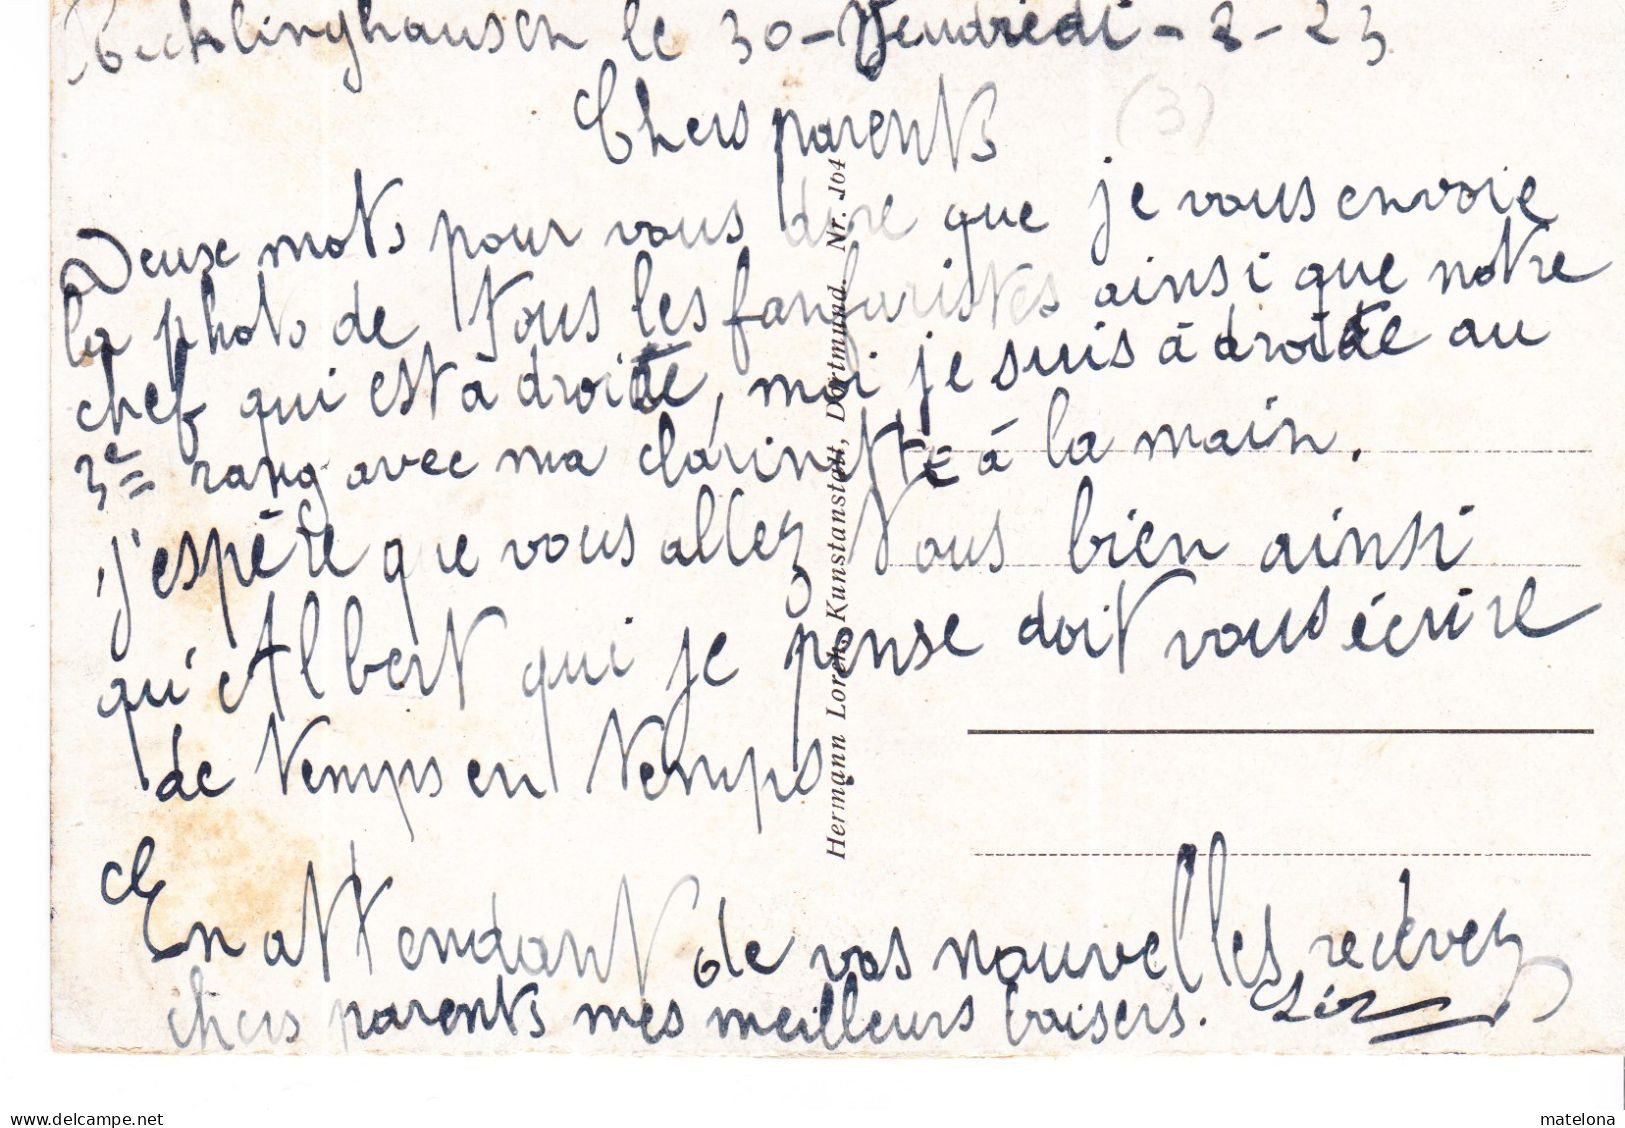 Recklinghausen le 30 - Vendredi - 3 - 23
(3)
Chers parents
Deux mots pour vous dire que je vous envoie
la photo de tous les fanfaristes ainsi que notre
chef qui est à droite, moi je suis à droite au
3e rang avec ma clarinette à la main.
j'espère que vous allez tous bien ainsi
qu'Albert qui je pense doit vous écrire
de temps en temps
En attendant de vos nouvelles recevez
chers parents mes meilleurs baisers.
Hermann Lorch, Kunstanstalt, Dortmund. Nr. 104
www.delcampe.net
matelona